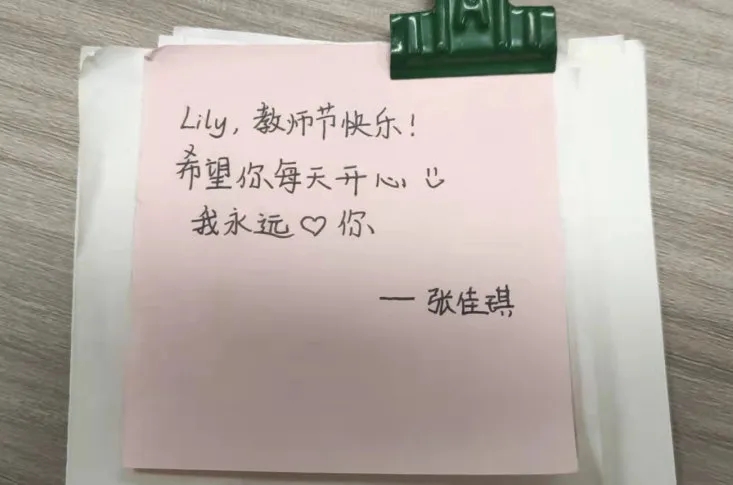 Lily,教师节快乐!
希望你每天开心
我永远♡你
——张佳琪